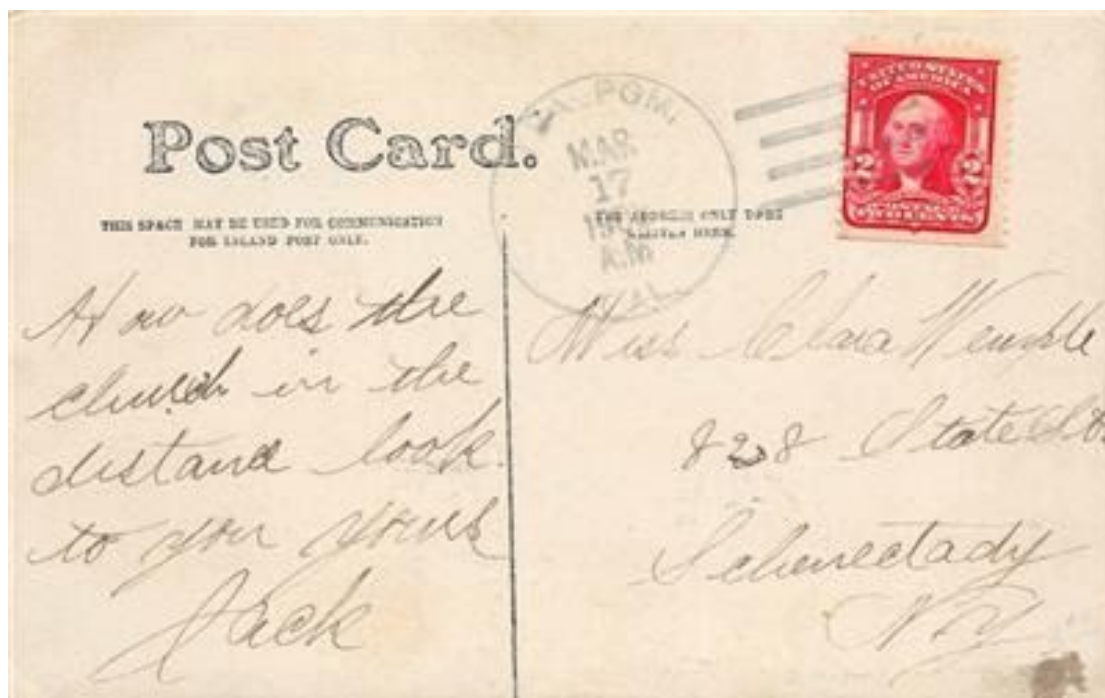 Post Card.
THIS SPACE MAY BE USED FOR COMMUNICATION
FOR INLAND POST ONLY.
THE ADDRESS ONLY
HERE.
MAR
17
AM
UNITED STATES
OF AMERICA
2 2
How does the
church in the
distance look
to you yours
Jack
Miss Clara Wemple
828 State St
Schenectady
N.Y.